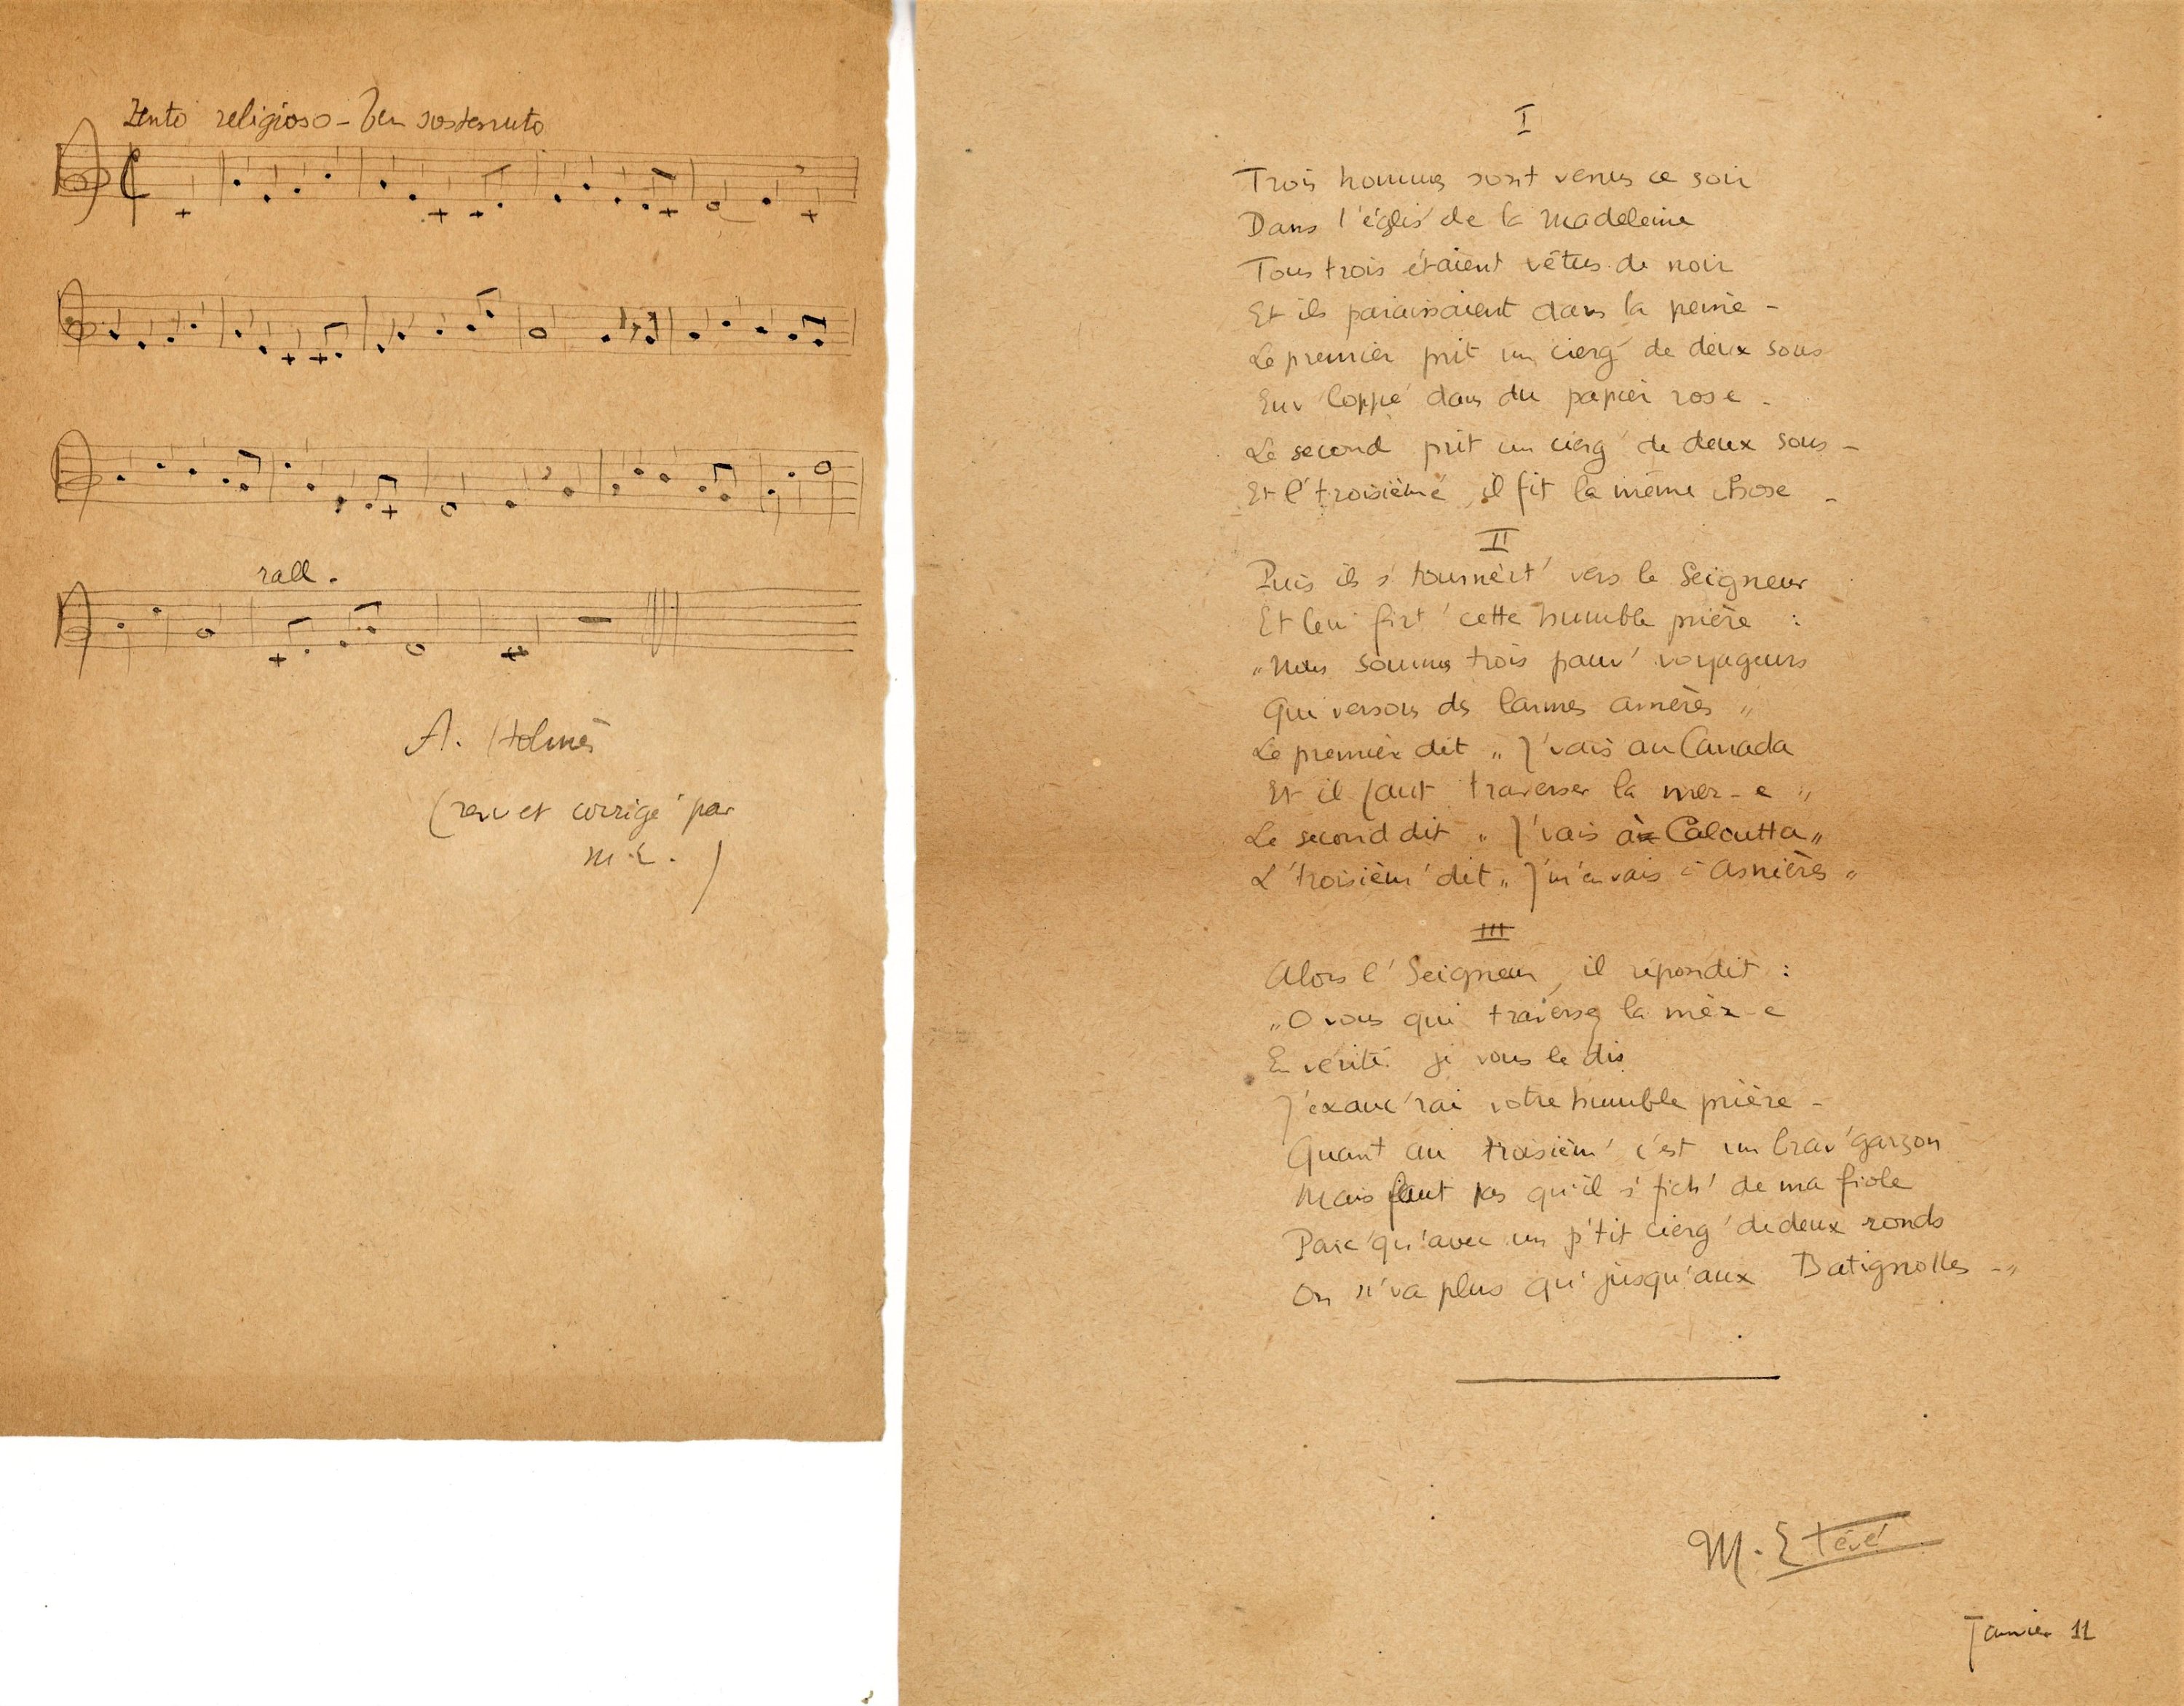 Lento religioso - ben sostenuto
rall.
A. Holmès
(revu et corrigé par
M.E.)
I
Trois hommes sont venus ce soir
Dans l'églis' de la Madeleine
Tous trois étaient vêtus de noir
Et ils paraissaient dans la peine -
Le premier prit un cierg' de deux sous
Env'loppé dans du papier rose -
Le second prit un cierg' de deux sous -
Et l'troisième, il fit la même chose -
II
Puis ils s'tournèr't' vers le Seigneur
Et lui fir't' cette humble prière :
"Nous sommes trois pauv' voyageurs
Qui versons des larmes amères"
Le premier dit "J'vais au Canada
Et il faut traverser la mer-e"
Le second dit "J'vais à Calcutta"
L'troisièm' dit "J'm'en vais à Asnières"
III
Alors l'Seigneur, il répondit :
"O vous qui traversez la mèr-e
En vérité je vous le dis
J'exauc'rai votre humble prière -
Quant au troisièm' c'est un brav'garçon
Mais faut pas qu'il s'fich' de ma fiole
Parc'qu'avec un p'tit cierg' de deux ronds
On n'va plus qu'jusqu'aux Batignolles -"
M. Etévé
Janvier 11